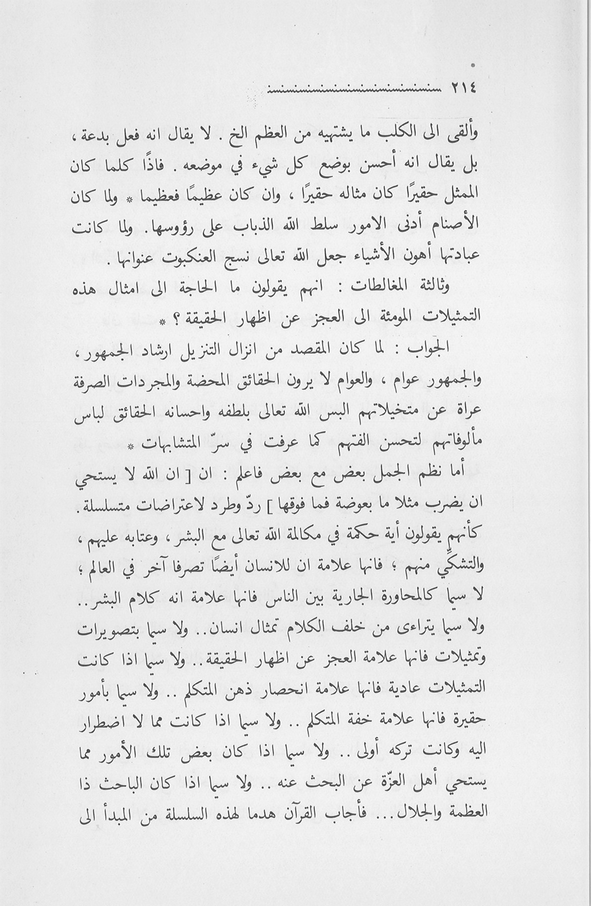 ٢١٤
وألقى الى الكلب ما يشتهيه من العظم الخ . لا يقال انه فعل بدعة ،
بل يقال انه أحسن بوضع كل شيء في موضعه . فاذًا كلما كان
الممثل حقيرًا كان مثاله حقيرًا ، وان كان عظيمًا فعظيما * ولما كان
الأصنام أدنى الامور سلط الله الذباب على رؤوسها. ولما كانت
عبادتها أهون الأشياء جعل الله تعالى نسج العنكبوت عنوانها .
وثالثة المغالطات : انهم يقولون ما الحاجة الى امثال هذه
التمثيلات المومئة الى العجز عن اظهار الحقيقة ؟ *
الجواب : لما كان المقصد من انزال التنزيل ارشاد الجمهور ،
والجمهور عوام ، والعوام لا يرون الحقائق المحضة والمجردات الصرفة
عراة عن متخيلاتهم البس الله تعالى بلطفه واحسانه الحقائق لباس
مألوفاتهم لتحسن الفتهم كما عرفت في سرّ المتشابهات *
أما نظم الجمل بعض مع بعض فاعلم : ان [ ان الله لا يستحي
ان يضرب مثلا ما بعوضة فما فوقها ] ردّ وطرد لاعتراضات متسلسلة .
كأنهم يقولون أية حكمة في مكالمة الله تعالى مع البشر ، وعتابه عليهم ،
والتشكّي منهم ؛ فانها علامة ان للانسان أيضًا تصرفا آخر في العالم ؛
لا سيما كالمحاورة الجارية بين الناس فانها علامة انه كلام البشر ..
ولا سيما يتراءى من خلف الكلام تمثال انسان .. ولا سيما بتصويرات
وتمثيلات فانها علامة العجز عن اظهار الحقيقة .. ولا سيما اذا كانت
التمثيلات عادية فانها علامة انحصار ذهن المتكلم .. ولا سيما بأمور
حقيرة فانها علامة خفة المتكلم .. ولا سيما اذا كانت مما لا اضطرار
اليه وكانت تركه أولى .. ولا سيما اذا كان بعض تلك الأمور مما
يستحي أهل العزّة عن البحث عنه .. ولا سيما اذا كان الباحث ذا
العظمة والجلال ... فأجاب القرآن هدما لهذه السلسلة من المبدأ الى